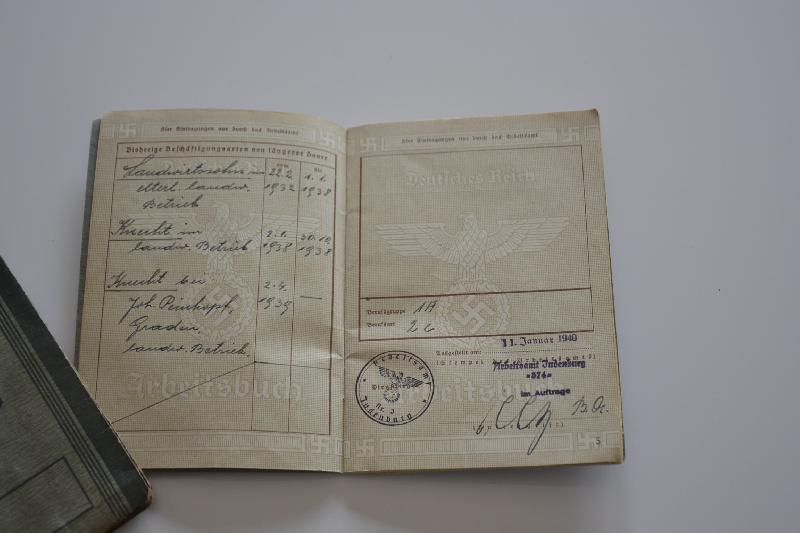 Hier Eintragungen nur durch das Arbeitsamt
Bisherige Beschäftigungsarten von längerer Dauer
vom
bis
Landwirtssohn im 22.2. 1.1.
elterl. landw. 1932 1938
Betrieb
Knecht im 2.1. 30.10.
landw. Betrieb 1938 1938
Knecht bei 2.4. —
Joh. 1939
Graden,
landw. Betrieb.
Arbeitsbuch
Hier Eintragungen nur durch das Arbeitsamt
Deutsches Reich
Berufsgruppe 1A
Berufsart 2c
Ausgestellt am: 11. Januar 1940
(Stempel des Arbeitsamtes)
Arbeitsamt Judenburg
»374«
Im Auftrage
Arbeitsamt
Dienstsiegel
Nr. 3
Judenburg
Arbeitsbuch
5